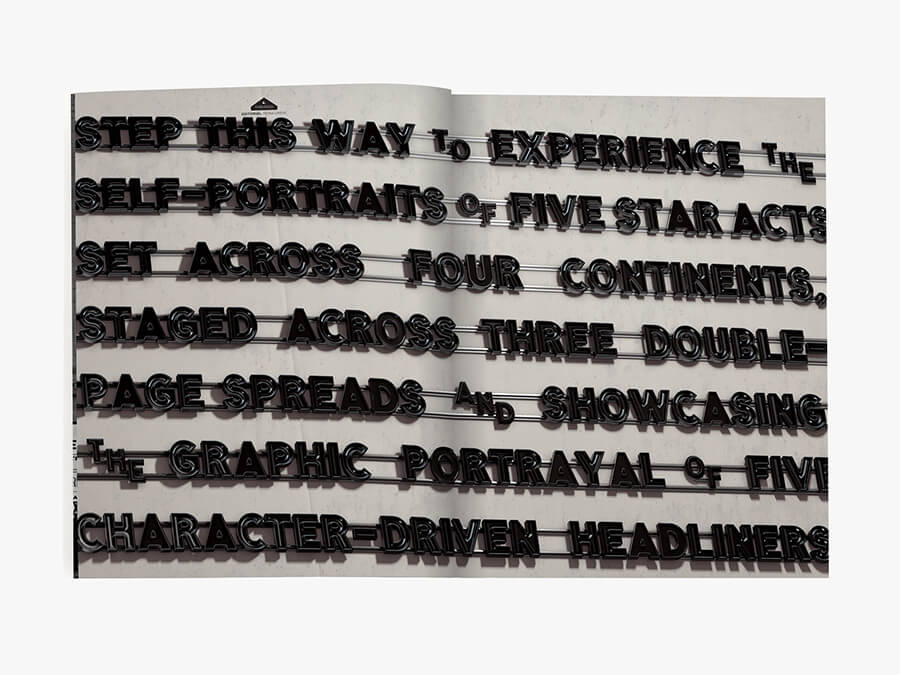 STEP THIS WAY TO EXPERIENCE THE
SELF-PORTRAITS OF FIVE STAR ACTS
SET ACROSS FOUR CONTINENTS,
STAGED ACROSS THREE DOUBLE-
PAGE SPREADS AND SHOWCASING
THE GRAPHIC PORTRAYAL OF FIVE
CHARACTER-DRIVEN HEADLINERS